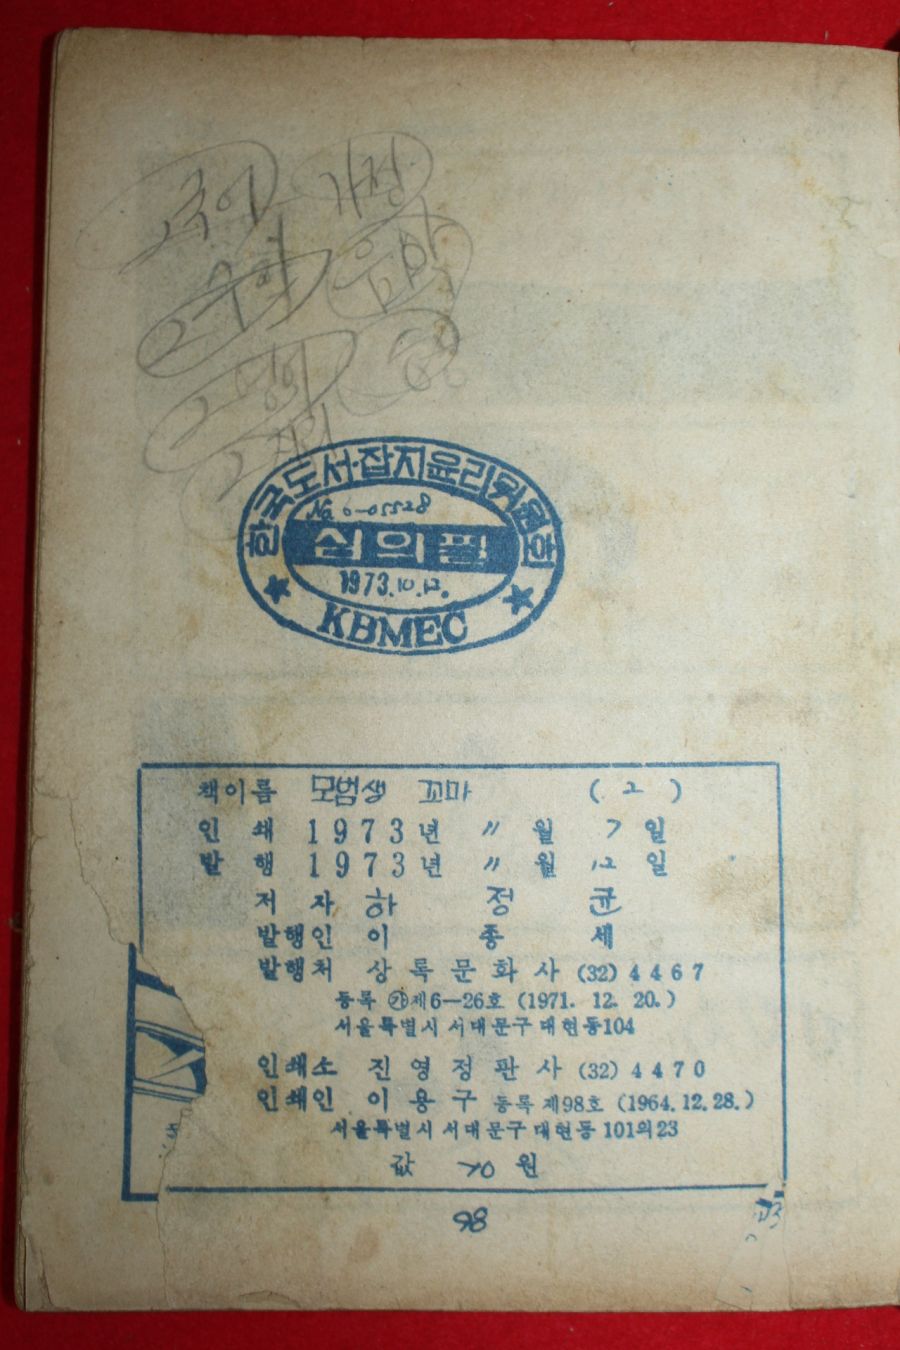 국어 가정
수학 음악
한국도서·잡지윤리위원회
No. 0-05528
심의필
1973.10.12.
KBMEC
책이름 모범생 꼬마 (2)
인쇄 1973년 〃월 7일
발행 1973년 〃월 12일
저자 하정균
발행인 이종세
발행처 상록문화사 (32) 4467
등록 ㉮제6—26호 (1971. 12. 20.)
서울특별시 서대문구 대현동104
인쇄소 진영정판사 (32) 4470
인쇄인 이용구 등록 제98호 (1964. 12. 28.)
서울특별시 서대문구 대현동 101의23
값 70원
98